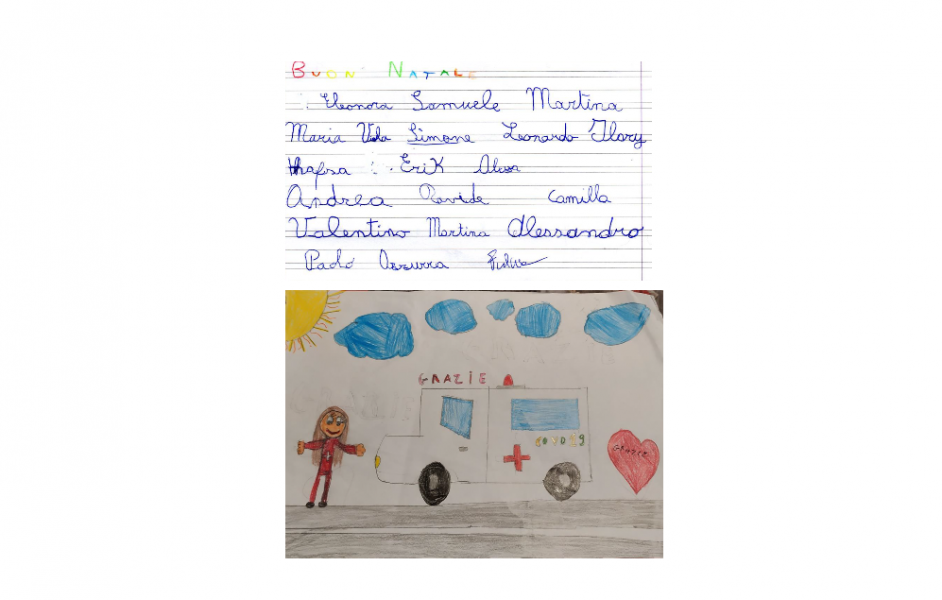 BUON NATALE
Eleonora Samuele Martina
Maria Vida Simone Leonardo Flory
Hafsa Erik
Andrea Davide Camilla
Valentino Martina Alessandro
Paolo Azzurra
GRAZIE
GRAZIE